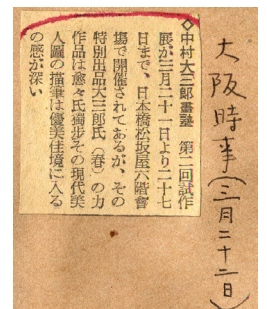 大阪時事(三月二十二日)
◇中村大三郎畫塾　第二回試作
展が三月二十一日より二十七
日まで、日本橋松坂屋六階會
場で開催されてあるが、その
特別出品大三郎氏(春)の力
作品は愈々氏獨步その現代美
人圖の描筆は優美佳境に入る
の感が深い